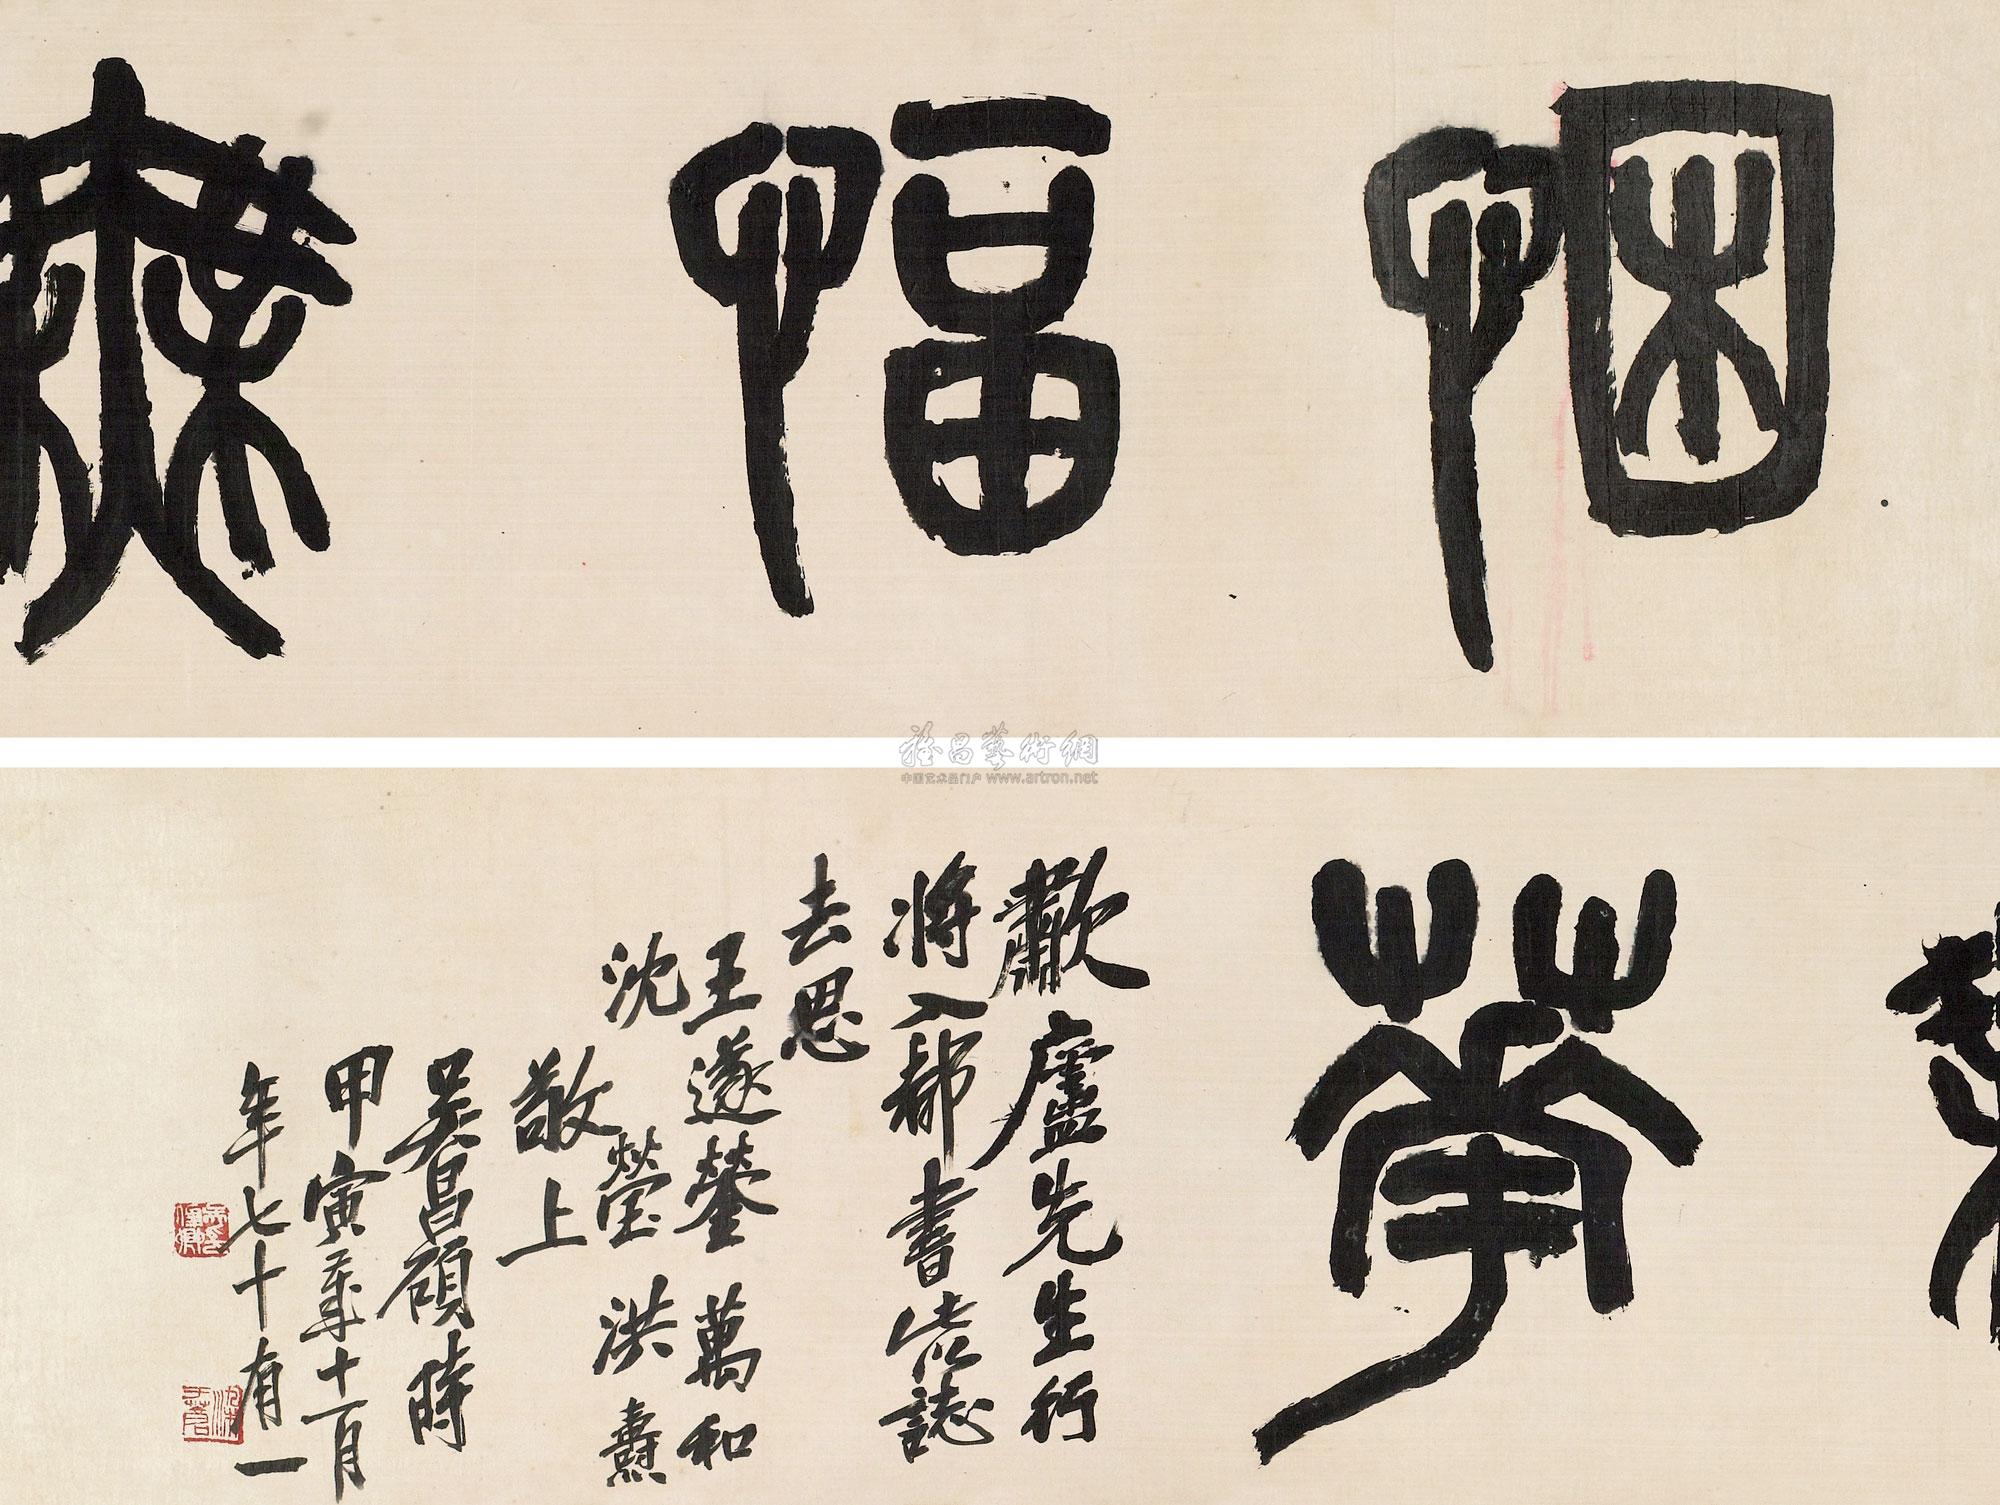 悃愊無
華
歗廬先生行
將入都書此誌
去思
王邃鎣 萬和
沈瑩 洪燾
敬上
吳昌碩時
甲寅年十一月
年七十有一
雅昌藝術網
中国艺术品门户 www.artron.net